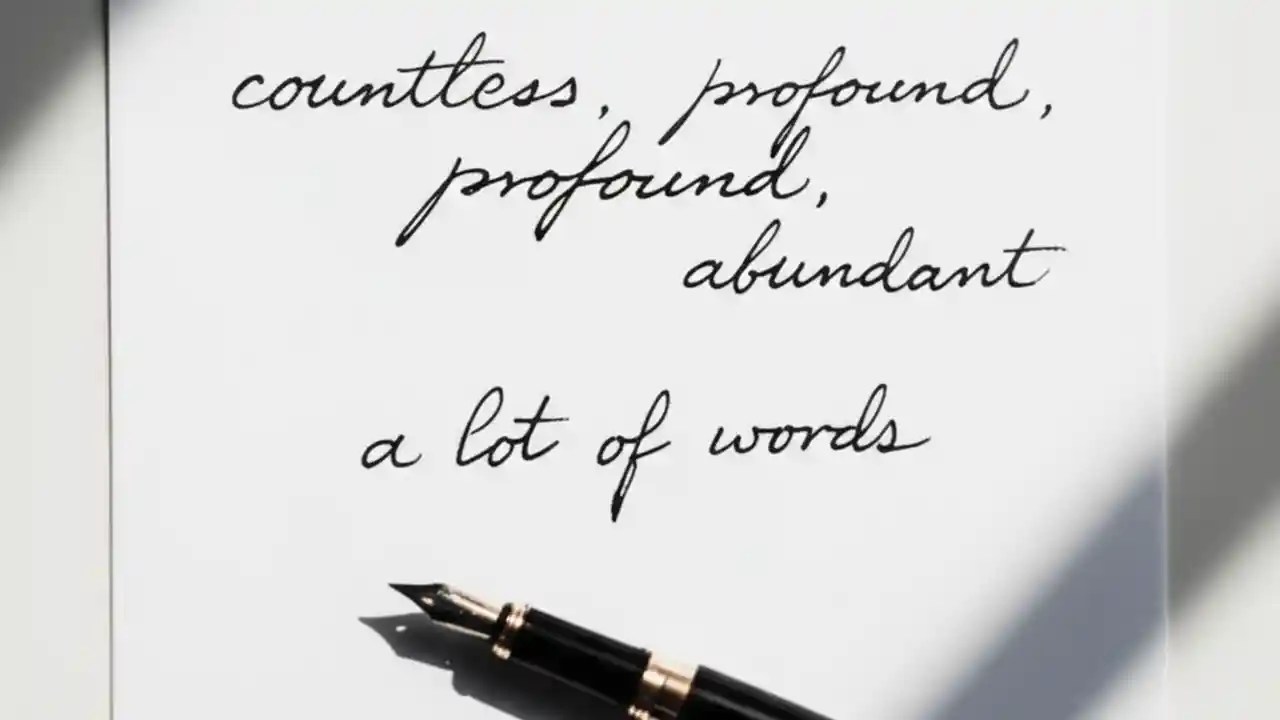 countless, profound,
profound,
abundant
a lot of words